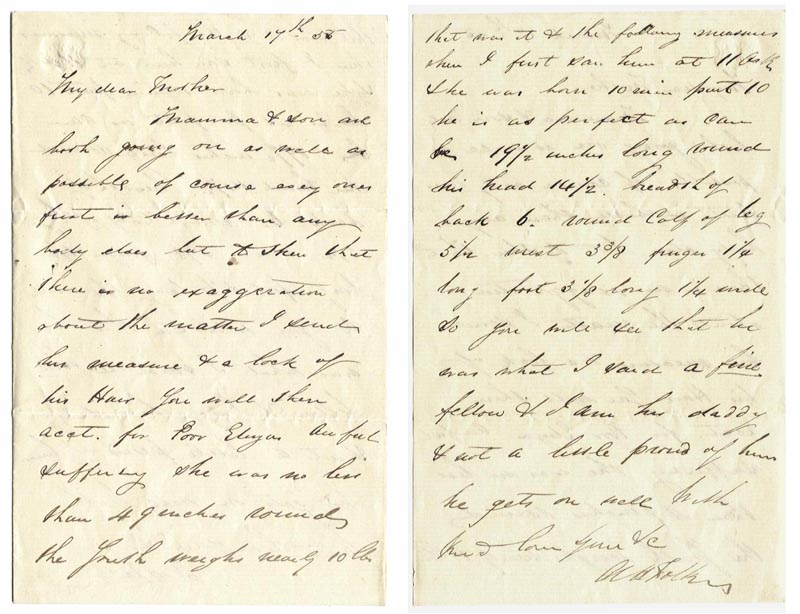 March 17th 55
My dear Mother
Mamma & son are
both going on as well as
possible of course every ones
first is better than any
body elses but to shew that
there is no exaggeration
about the matter I send
his measure & a lock of
his Hair You will then
acct. for Poor Elizas awful
suffering she was no less
than 49 inches round
the Youth weighs nearly 10 lbs
that was it & the following measures
when I first saw him at 11 Oclk
& he was born 10 min past 10
he is as perfect as can
be 19 1/2 inches long round
his head 14 1/2. breadth of
back 6. round Calf of leg
5 1/2 wrist 3 3/8 finger 1 1/4
long foot 3 1/8 long 1 1/4 wide
So you will see that he
was what I said a fine
fellow & I am his daddy
& not a little proud of him
he gets on well With
kind love Your &c